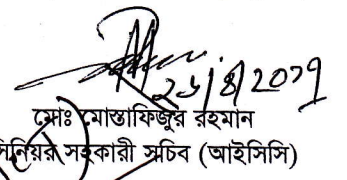 ২৬/৪/2০১৭
মোঃ মোস্তাফিজুর রহমান
সিনিয়র সহকারী সচিব (আইসিসি)